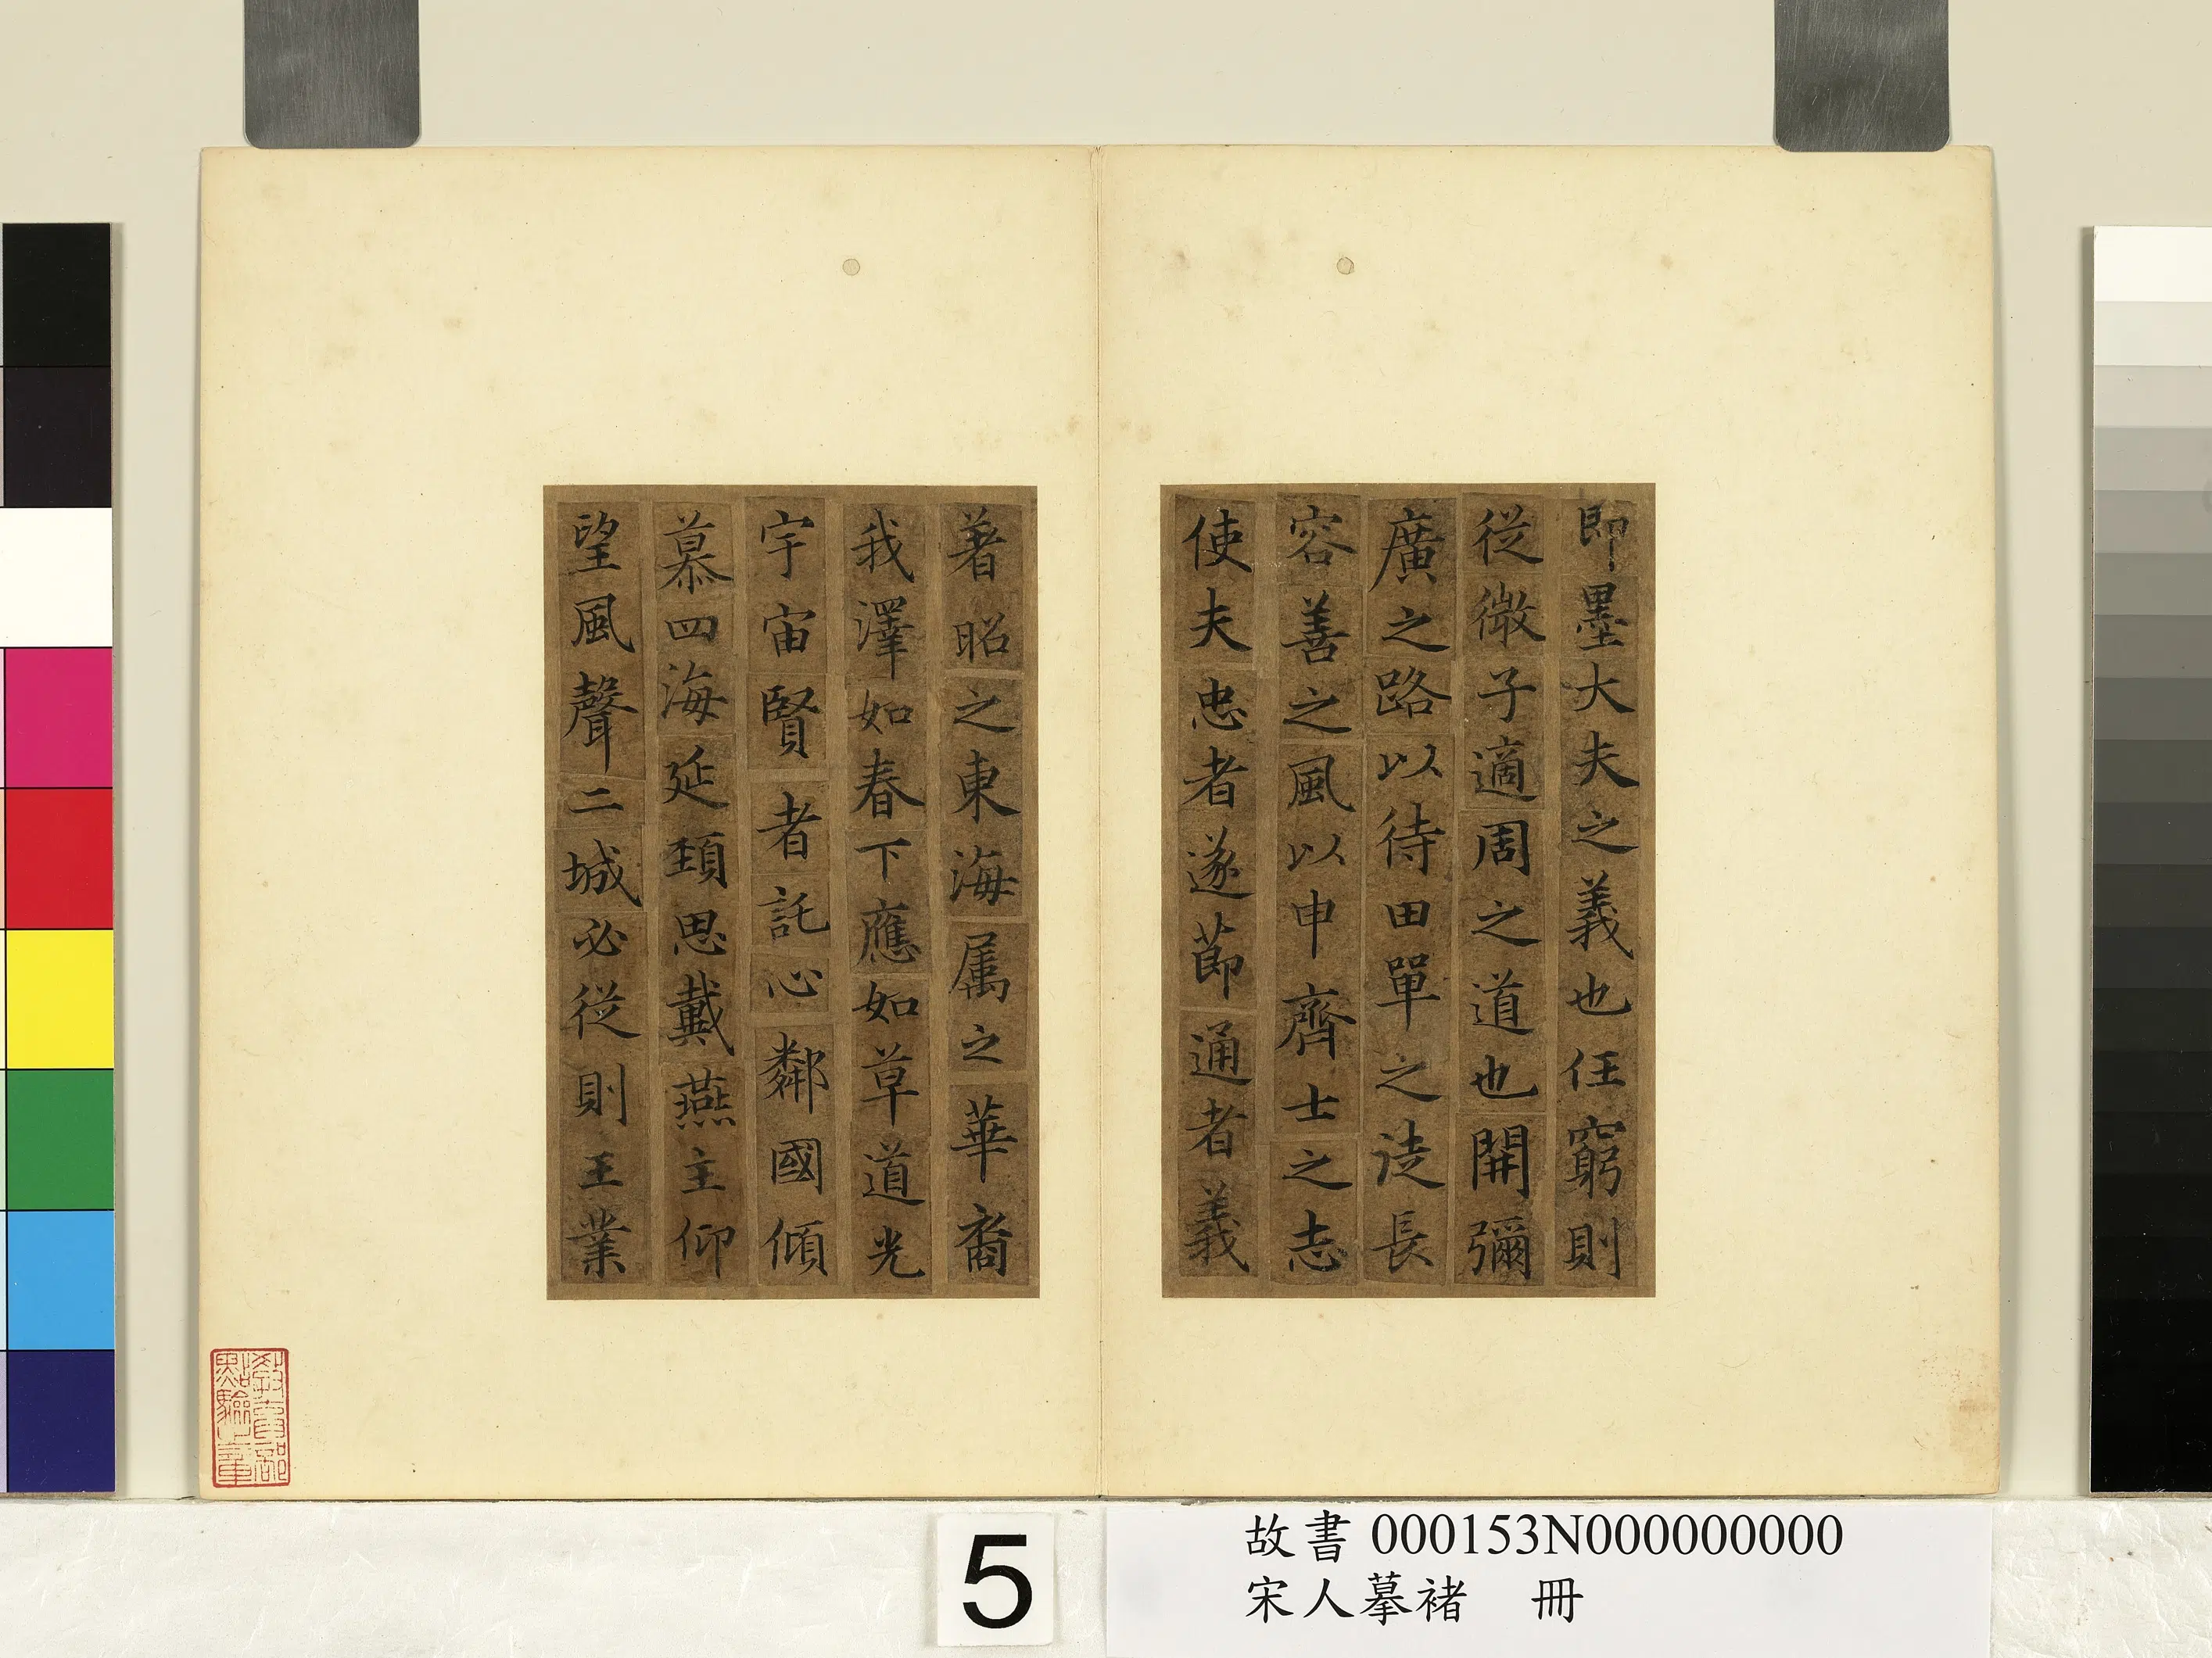 即墨大夫之義也任窮則
從微子適周之道也開彌
廣之路以待田單之徒長
容善之風以申齊士之志
使夫忠者遂節通者義
著昭之東海屬之華裔
我澤如春下應如草道光
宇宙賢者託心鄰國傾
慕四海延頸思戴燕主仰
望風聲二城必從則王業
教育部
點驗之章
5
故書 000153N000000000
宋人摹褚 冊